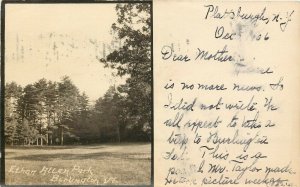 Plattsburgh, N.Y.
Dec 06
Dear Mother:
There
is no more news. So
I did not write. We
all expect to take a
trip to Burlington
Sat. This is a
postal Mr. Taylor made
picture
Ethan Allen Park
Burlington Vt.